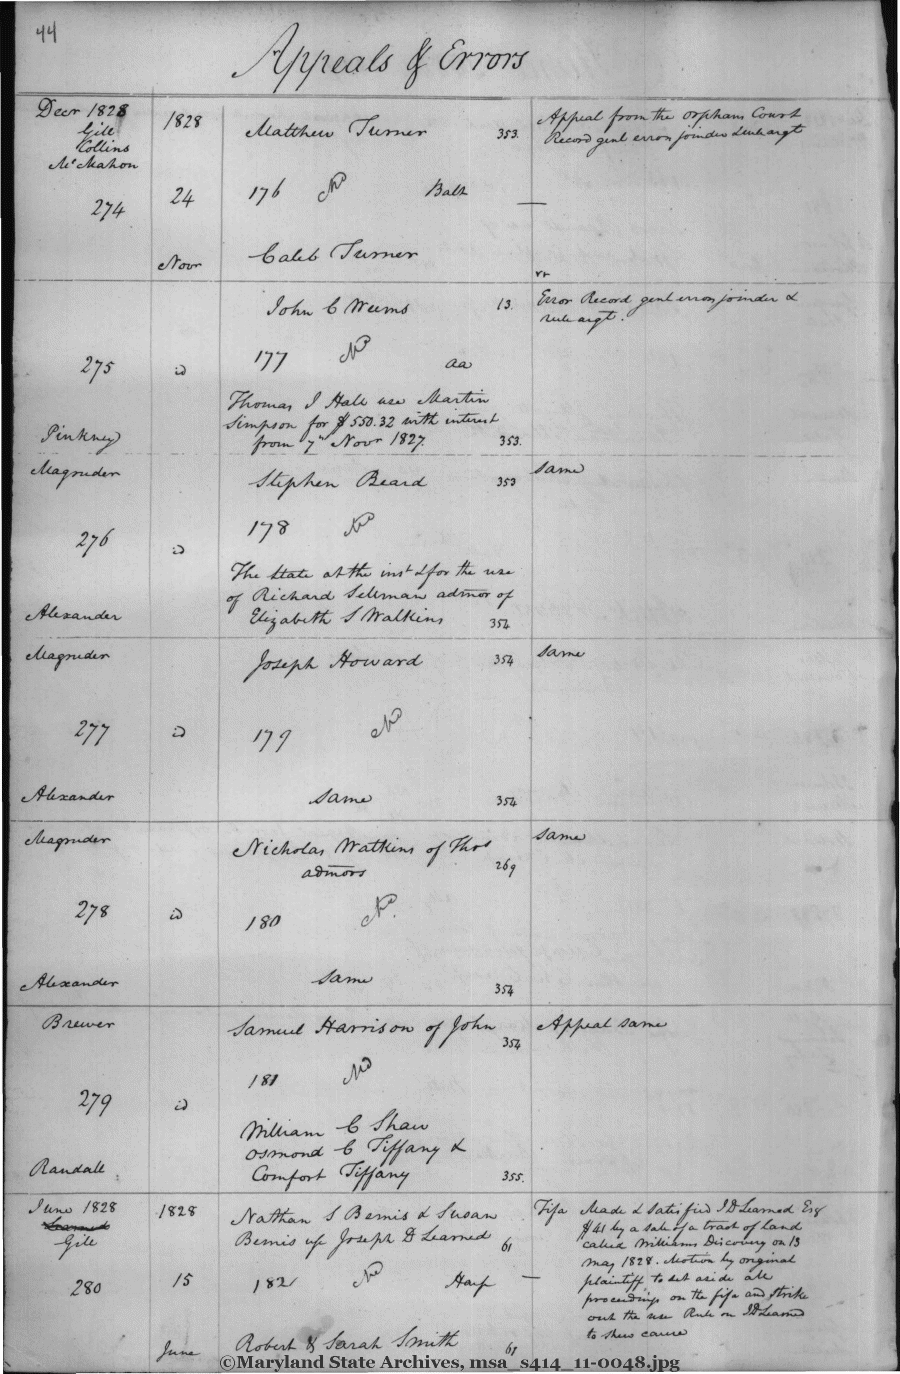 44
Appeals & Errors
Decr 1828
Gill
Collins
McMahon
274
1828
24
Novr
Matthew Turner 353.
176 No Balt
Caleb Turner
Appeal from the orphans Court
Record genl errors joinder &
rr
275
Pinkney
id
John C Weems 13.
177 No aa
Thomas J Hall use Martin
Simpson for $550.32 with interest
from 7th Novr 1827. 353.
Error Record genl errors joinder &
rule argt.
Magruder
276
Alexander
id
Stephen Beard 353
178 No
The State at the inst & for the use
of Richard Sellman admor of
Elizabeth S Watkins 354
same
Magruder
277
Alexander
id
Joseph Howard 354
179 No
same 354
same
Magruder
278
Alexander
id
Nicholas Watkins of Thos
admors 269
180 No.
same 354
same
Brewer
279
Randall
id
Samuel Harrison of John
354
181 No
William C Shaw
Osmond C Tiffany &
Comfort Tiffany 355.
Appeal same
June 1828
Learned
Gill
280
1828
15
June
Nathan S Bemis & Susan
Bemis use Joseph D Learned 61
182 No Harf
Robert & Sarah Smith 61
Fifa Made & Satisfied J D Learned Esq
$41 by a sale of a tract of land
called Williams Discovery on 13
may 1828. Motion by original
plaintiff to set aside all
proceedings on the fifa and strike
out the use Rule on J D Learned
to shew cause
©Maryland State Archives, msa_s414_11-0048.jpg